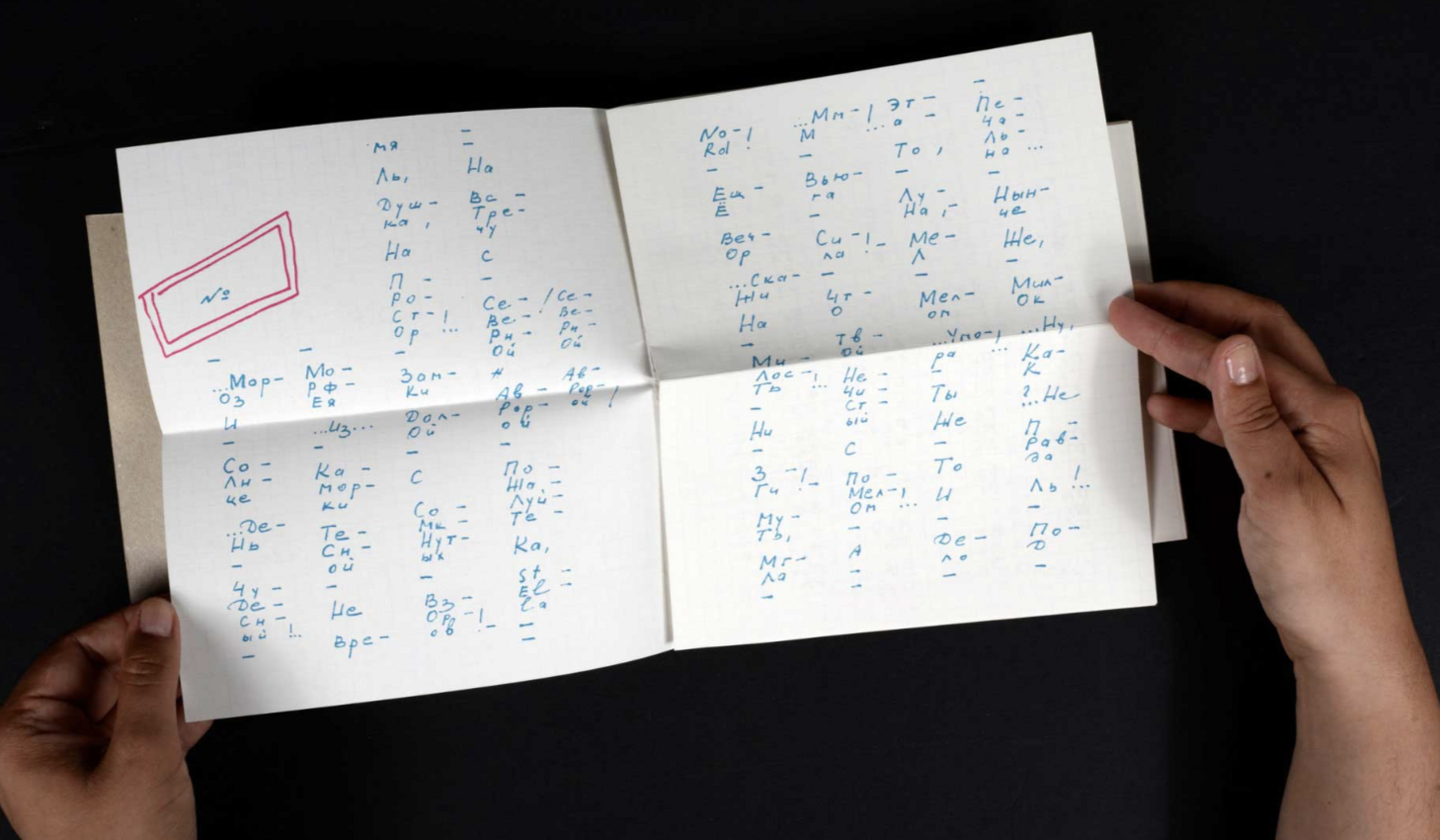 №
–
...Мор-
оз
И
–
Со -
Лн -
це
...Де-
Нь
–
Чу -
Де -
Сн -
ый !...
–
–
Мо -
РФ -
Ея
...Из...
–
Ка -
мор-
ки
Те -
Сн -
ой
–
Не
Вре-
мя
Ль,
Душ -
ка ,
На
П -
Ро -
Ст - !
Ор ...
–
Зам -
Ки
Дол-
Ой
–
С
Со -
Мк -
Нут-
ых
–
Вз -
Ор - !
ов ...
–
–
На
Вс -
Тре-
чу
С
–
Се - / Се -
Ве - Ве -
Рн - Рн -
Ой Ой
Ав - Ав -
Рор- Рор-
ой ой !
–
По -
Жа -
Луй -
Те -
Ка,
St -
El -
la
–
–
No - !
Rd !
–
Ещ -
Ё
Веч -
Ор
...Ска-
Жи
На
–
Ми -
Лос - !
Ть ...
–
Ни
З - !
Ги ! -
Му -
Ть,
Мг -
Ла
–
...Мм - !
М ...
–
Вью-
га
–
Си - !
ла ! -
–
Чт -
О
Тв -
Ой
Не -
Чи -
Ст -
ый
С
По -
Мел - !
Ом ...
–
А
–
–
Эт -
а -
То ,
–
Лу -
На , -
Ме -
Л
–
Мел -
ом
...Ут-
ра
–
Ты
Же
То
И
–
Де -
ло
–
–
Пе -
Ча -
Ль -
на ...
–
Нын-
че
Же,
–
Мил -
Ок
...Ну,
Ка -
К
?...Не
П -
Рав-
да
Ль !...
–
По -
Д
–